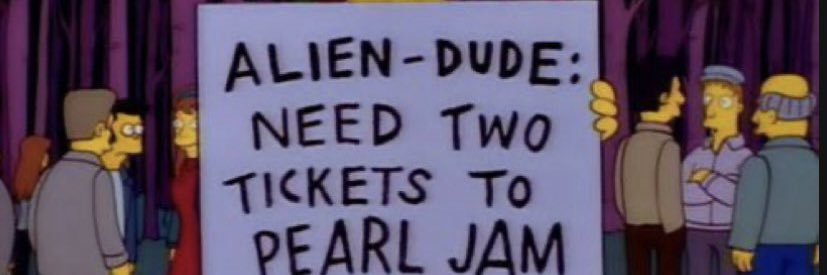 ALIEN-DUDE:
NEED TWO
TICKETS TO
PEARL JAM